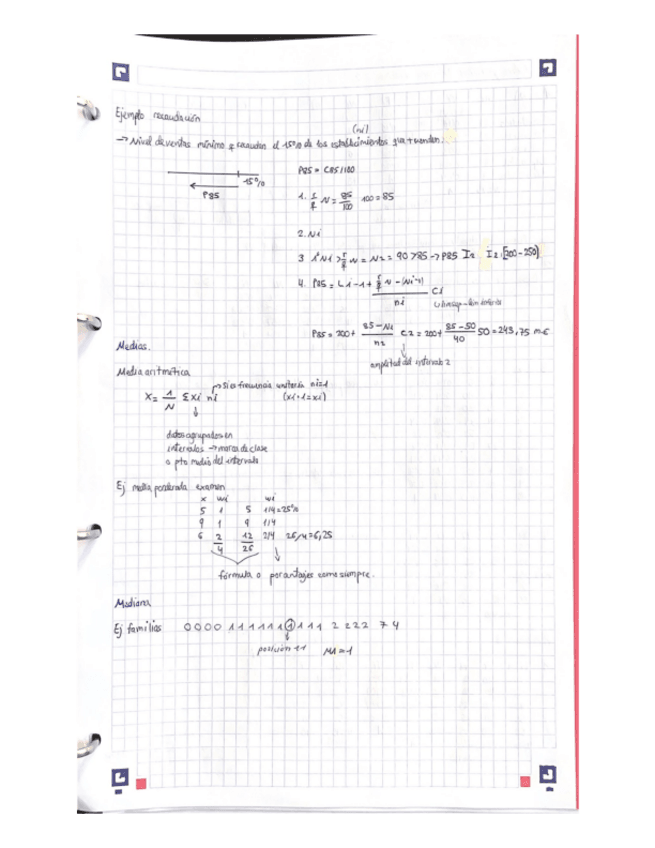 Ejemplo recaudación
(ni)
→ Nivel de ventas mínimo q recaudan el 15% de los establecimientos que + venden.
15%
P85
P85 = C85/100
1. r/k N = 85/100 100 = 85
2. Ni
3 1º Ni > r/k N = N2 = 90 > 85 → P85 I2 I2: [200-250]
4. P85 = Li-1 + (r/k N - (Ni-1))/ni Ci
P85 = 200 + (85 - N1)/n2 C2 = 200 + (85-50)/40 50 = 243,75 m €
amplitud del intervalo 2
Medias.
Media aritmética
→ Si es frecuencia unitaria ni=1
X = 1/N Σxi ni (xi·1=xi)
datos agrupados en
intervalos → marca de clase
o pto medio del intervalo
Ej media ponderada examen
x wi wi
5 1 5 1/4=25%
9 1 9 1/4
6 2 12 2/4 26/4=6,25
4 26
fórmula o porcentajes como siempre.
Mediana
Ej familias 0 0 0 0 1 1 1 1 1 1 1 1 1 1 2 2 2 2 7 4
posición 11 M=1